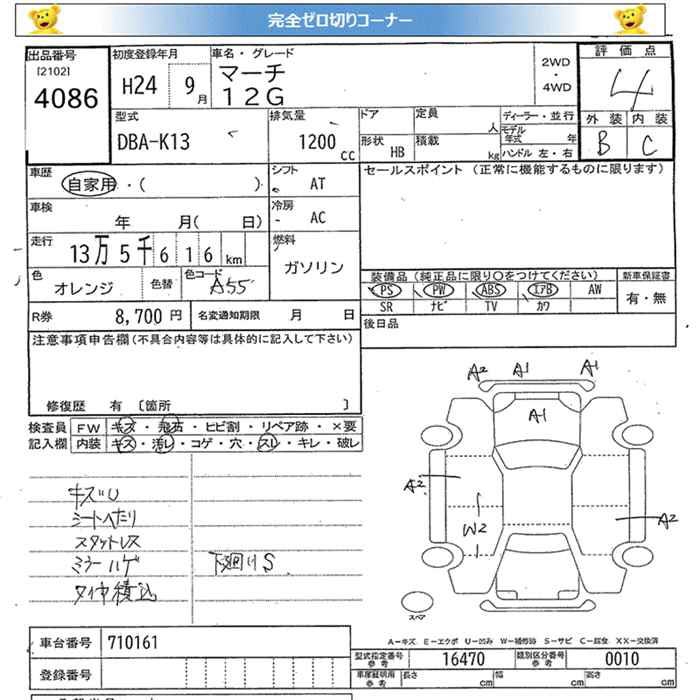 完全ゼロ切りコーナー
出品番号
[2102]
4086
初度登録年月
H24 9月
車名・グレード
マーチ
12G
2WD
・
4WD
評価点
4
外装 内装
B C
型式
DBA-K13
排気量
1200 cc
ドア
定員 人
形状 HB
積載 kg
ディーラー・並行
モデル年式 年
ハンドル 左・右
車歴
自家用・( )
シフト
AT
セールスポイント (正常に機能するものに限ります)
車検
年 月( 日)
冷房
AC
走行
13万 5千 6 1 6 km
燃料
ガソリン
色
オレンジ
色替
色コード
A55
装備品 (純正品に限り○をつけてください)
PS PW ABS エアB AW
SR ナビ TV カワ
新車保証書
有・無
R券 8,700 円
名変通知期限 月 日
後日品
注意事項申告欄 (不具合内容等は具体的に記入して下さい)
修復歴 有 〔箇所 〕
検査員
記入欄
FW キズ・飛石・ヒビ割・リペア跡・×要
内装 キズ・汚レ・コゲ・穴・スレ・キレ・破レ
キズU
シートへたり
スタットレス
ミラーハゲ
下廻りS
タイヤ積込
A2 A1 A1
A1
A2
W2
A2
スペア
A-キズ E-エクボ U-凹み W-補修跡 S-サビ C-腐食 XX-交換済
車台番号 710161
登録番号
型式指定番号 参考 16470
類別区分番号 参考 0010
車庫証明用 参考 長さ cm 幅 cm 高さ cm